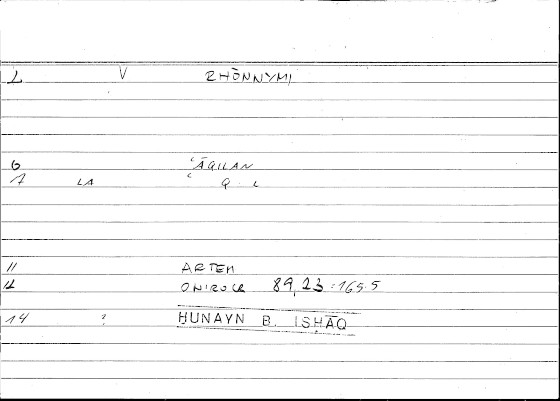 1 V RHŌNNYMI
6 ʿĀQILAN
7 LA ʿ Q L
11 ARTEM
12 ONIROCR 89,23 : 165.5
14 ? ḤUNAYN B. ISḤĀQ